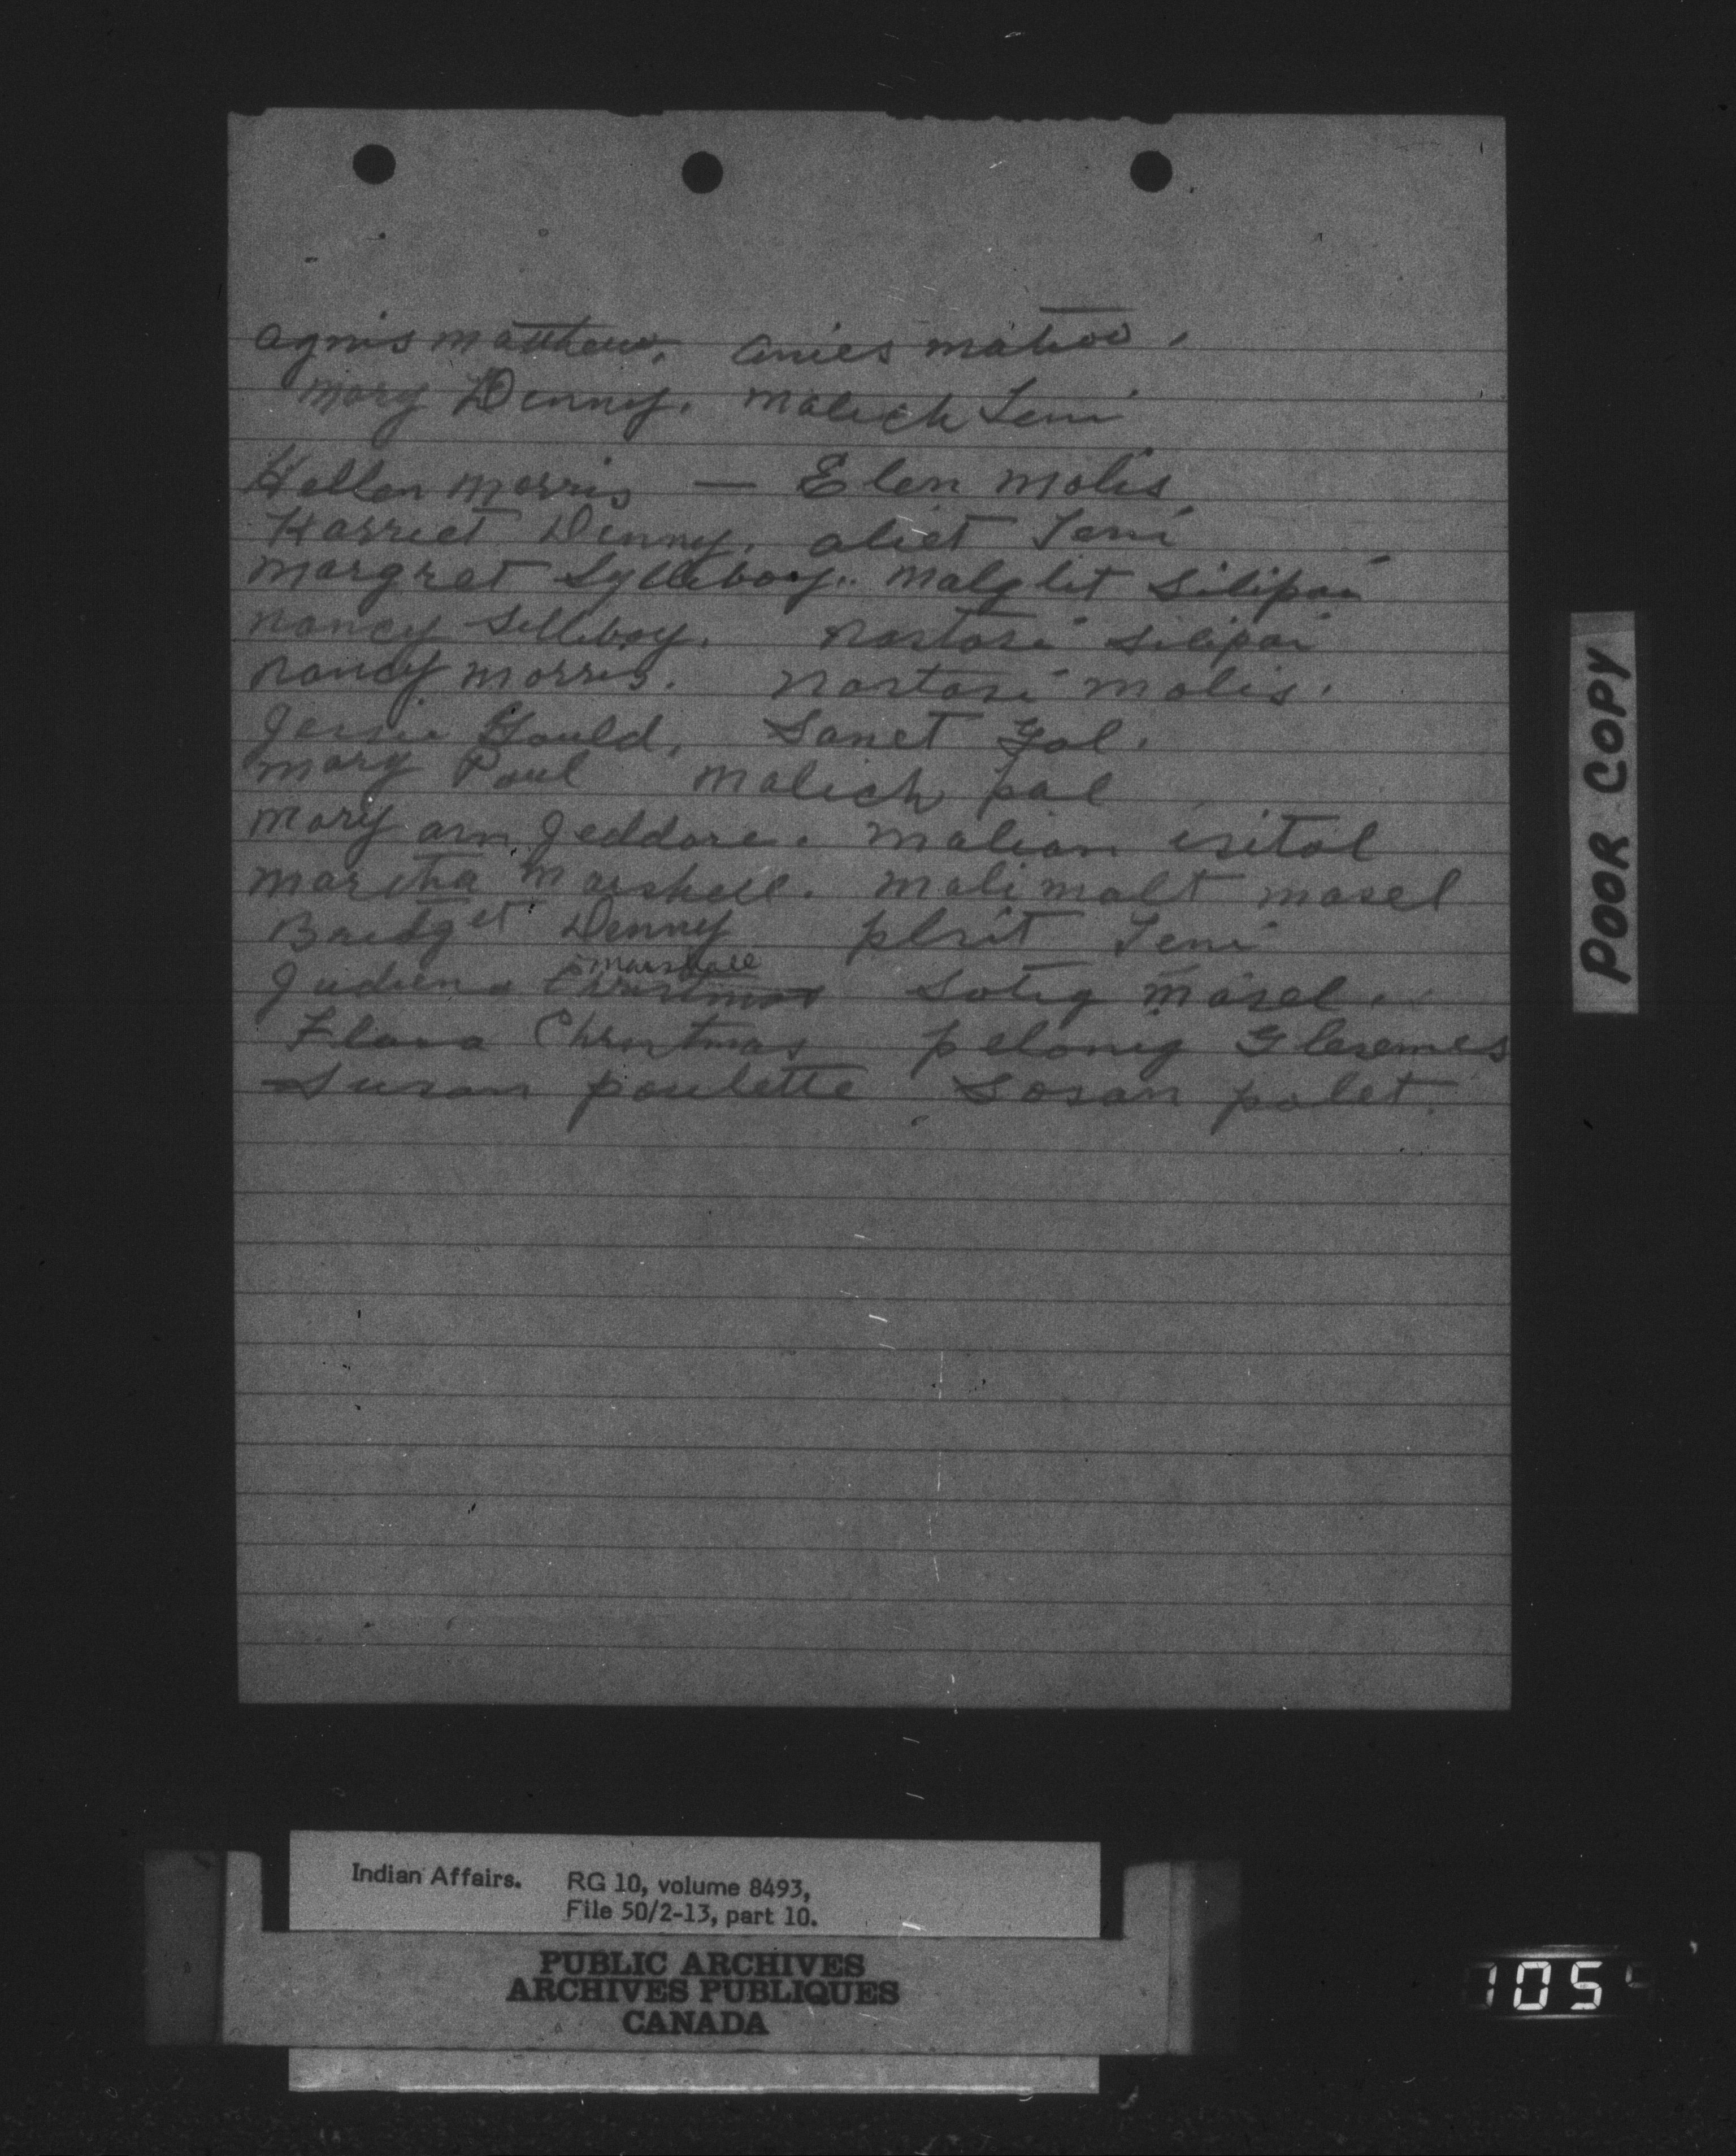 agnis matthew, anies matio.
mary Denny. malich Teni
Hellen morris — Elen molis
Harriet Denny, aliet Teni
margret Sylliboy.. malglit Silipai
nancy Sylliboy. nastasi Silipai
nancy morris. nartasi molis.
Jessie Gould. Sanet Gol.
mary Paul malich pal
mary ann Jeddore. malian isitol
martha marshell. malimalt masel
Bridget Denny plsit Teni
marshall
Christmas Sotig masel.
Christmas pelonig Glesemes
Susan poulette Sosan polet.
POOR COPY
Indian Affairs. RG 10, volume 8493,
File 50/2-13, part 10.
PUBLIC ARCHIVES
ARCHIVES PUBLIQUES
CANADA